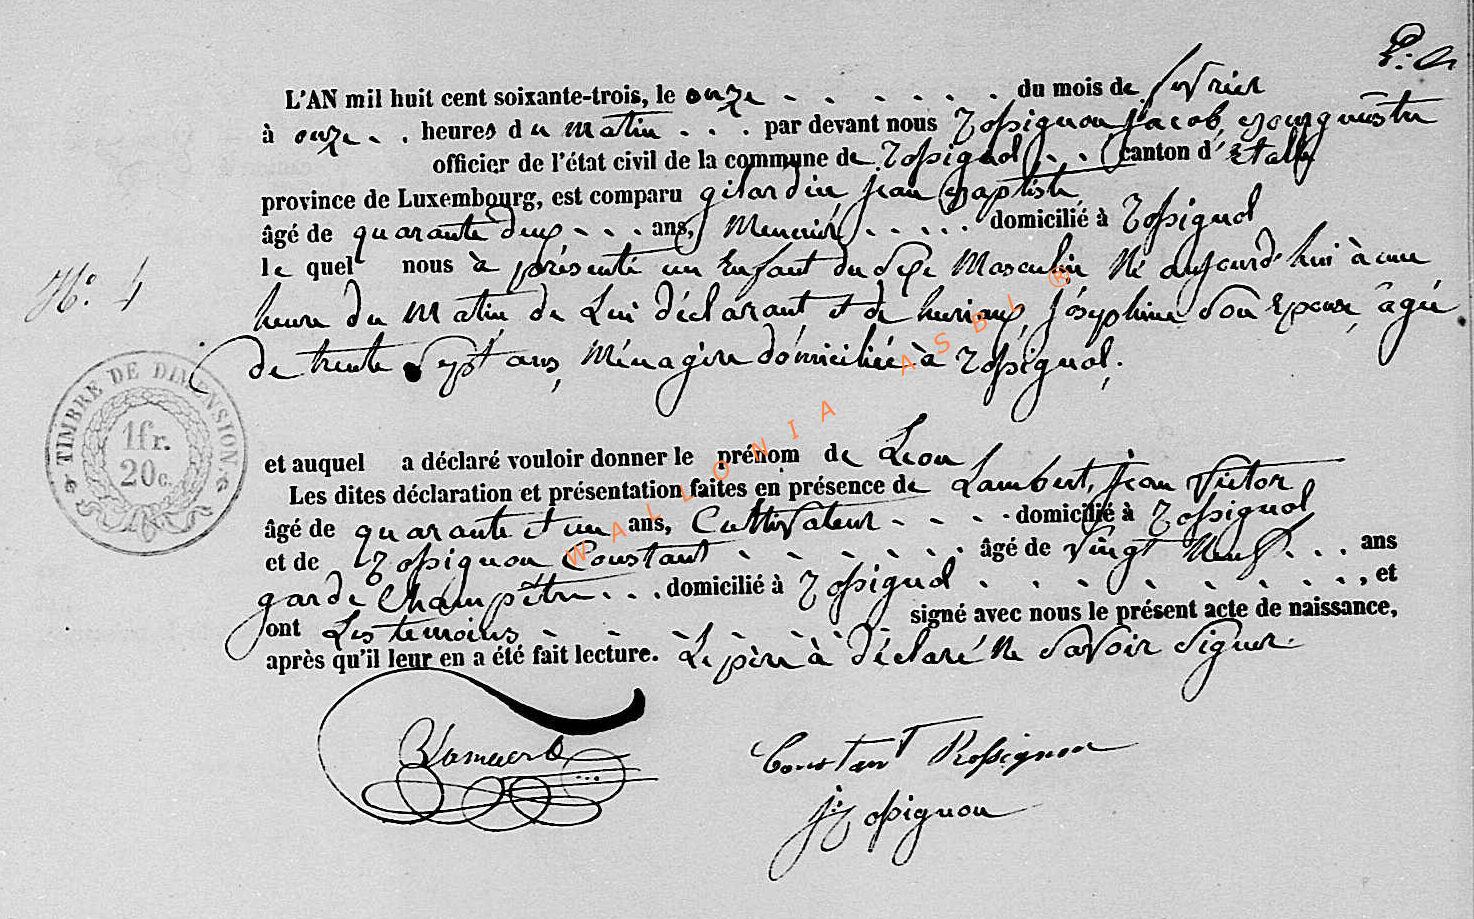 L'AN mil huit cent soixante-trois, le onze - - - - - - du mois de fevrier
à onze - . heures du matin . . . par devant nous Rossignon Jacob, Bourguestre
officier de l'état civil de la commune de Rossignol - - - canton d'Etalle
province de Luxembourg, est comparu gilardin jean Baptiste
âgé de quarante deux - - - ans, Menuisier - - - - - domicilié à Rossignol
le quel nous à présenté un Enfant du Sexe Masculin Né aujourd'hui à une
N.o 4
heure du Matin de Lui déclarant et de huriaux, Joséphine Son Epouse, âgée
de trente Sept ans, Ménagère domiciliée à Rossignol.
TIMBRE DE DIMENSION.
1fr.
20c.
et auquel a déclaré vouloir donner le prénom de Léon
Les dites déclaration et présentation faites en présence de Lambert, Jean Victor
âgé de quarante et un ans, Cultivateur - - - - domicilié à Rossignol
et de Rossignon Constant - - - - - - âgé de Vingt Neuf - . . ans
garde Champêtre . . . domicilié à Rossignol - - - - - - - -, et
ont Les temoins - - - - - - - signé avec nous le présent acte de naissance,
après qu'il leur en a été fait lecture. Le père à déclaré Ne Savoir Signer.
WALLONIA ASBL ®
Constant Rossignon
J: Rossignon